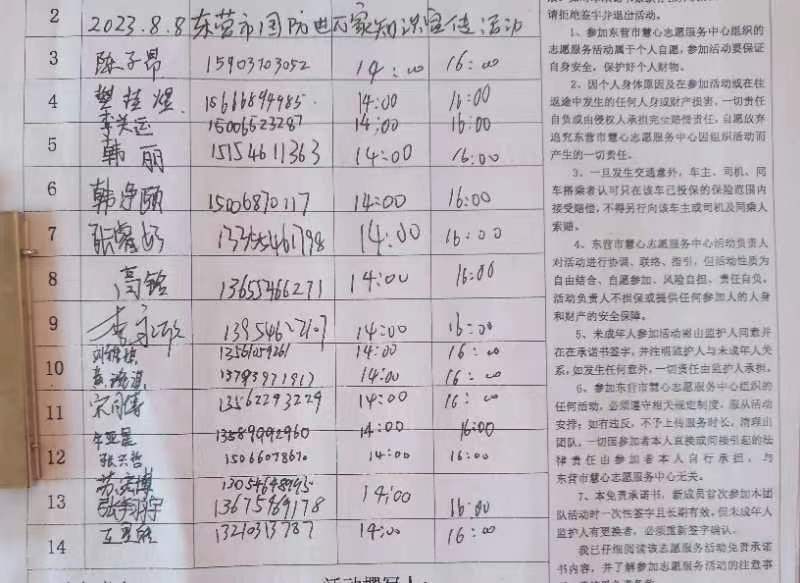 2 2023.8.8 东营市国防进万家知识宣传活动
3 陈子昂 15903703052 14:00 16:00
4 樊桂煜 15666894985. 14:00 16:00
15006523287 14:00 16:00
5 韩丽 15154611363 14:00 16:00
6 韩净颐 15006870117 14:00 16:00
7 14:00 16:00
8 高铭 13655466271 14:00 16:00
9 14:00 16:00
13561059261 14:00 16:00
10 13793971917 14:00 16:00
11 13562293229 14:00 16:00
13589992960 14:00 16:00
12 张兴哲 15066078670 14:00 16:00
13 13675469178 14:00 16:00
14 13210313787 14:00 16:00
请拒绝签字并退出活动。
1、参加东营市慧心志愿服务中心组织的
志愿服务活动属于个人自愿，参加活动要保证
自身安全，保护好个人财物。
2、因个人身体原因及在参加活动或在往
返途中发生的任何人身或财产损害，一切责任
自负或由侵权人承担完全赔偿责任，自愿放弃
追究东营市慧心志愿服务中心因组织活动而
产生的一切责任。
3、一旦发生交通意外，车主、司机、同
车搭乘者认可只在该车已投保的保险范围内
接受赔偿，不得另行向该车主或司机及同乘人
索赔。
4、东营市慧心志愿服务中心活动负责人
对活动进行协调、联络、指引，但活动性质为
自由结合、自愿参加、风险自担、责任自负。
活动负责人不担保或提供任何参加人的人身
和财产的安全保障。
5、未成年人参加活动需由监护人同意并
在在承诺书签字，并注明监护人与未成年人关
系，如发生任何意外，一切责任由监护人承担。
6、参加东营市慧心志愿服务中心组织的
任何活动，必须遵守相关规定制度，服从活动
安排；如有违反，不予上传服务时长，清理出
团队，一切因参加者本人直接或间接引起的法
律责任由参加者本人自行承担，与
东营市慧心志愿服务中心无关。
7、本免责承诺书，新成员首次参加本团
队活动时一次性签字且长期有效，但未成年人
监护人有更换者，必须重新签字确认。
我已仔细阅读该志愿服务活动免责承诺
书内容，并了解参加志愿服务活动的注意事